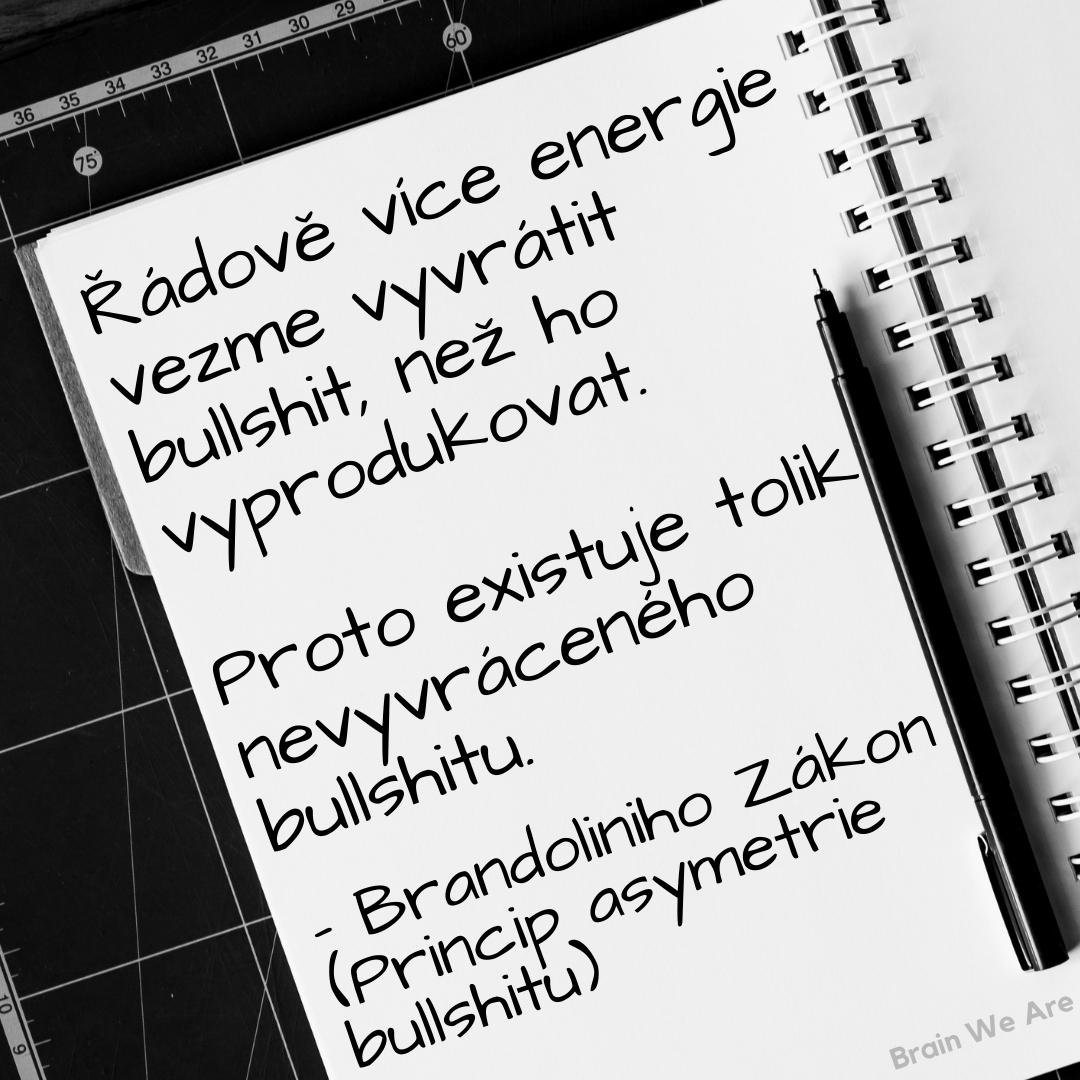 36 35 34 33 32 31 30 29
60°
75°
Řádově více energie
vezme vyvrátit
bullshit, než ho
vyprodukovat.
Proto existuje tolik
nevyvráceného
bullshitu.
- Brandoliniho Zákon
(Princip asymetrie
bullshitu)
10
9
Brain We Are